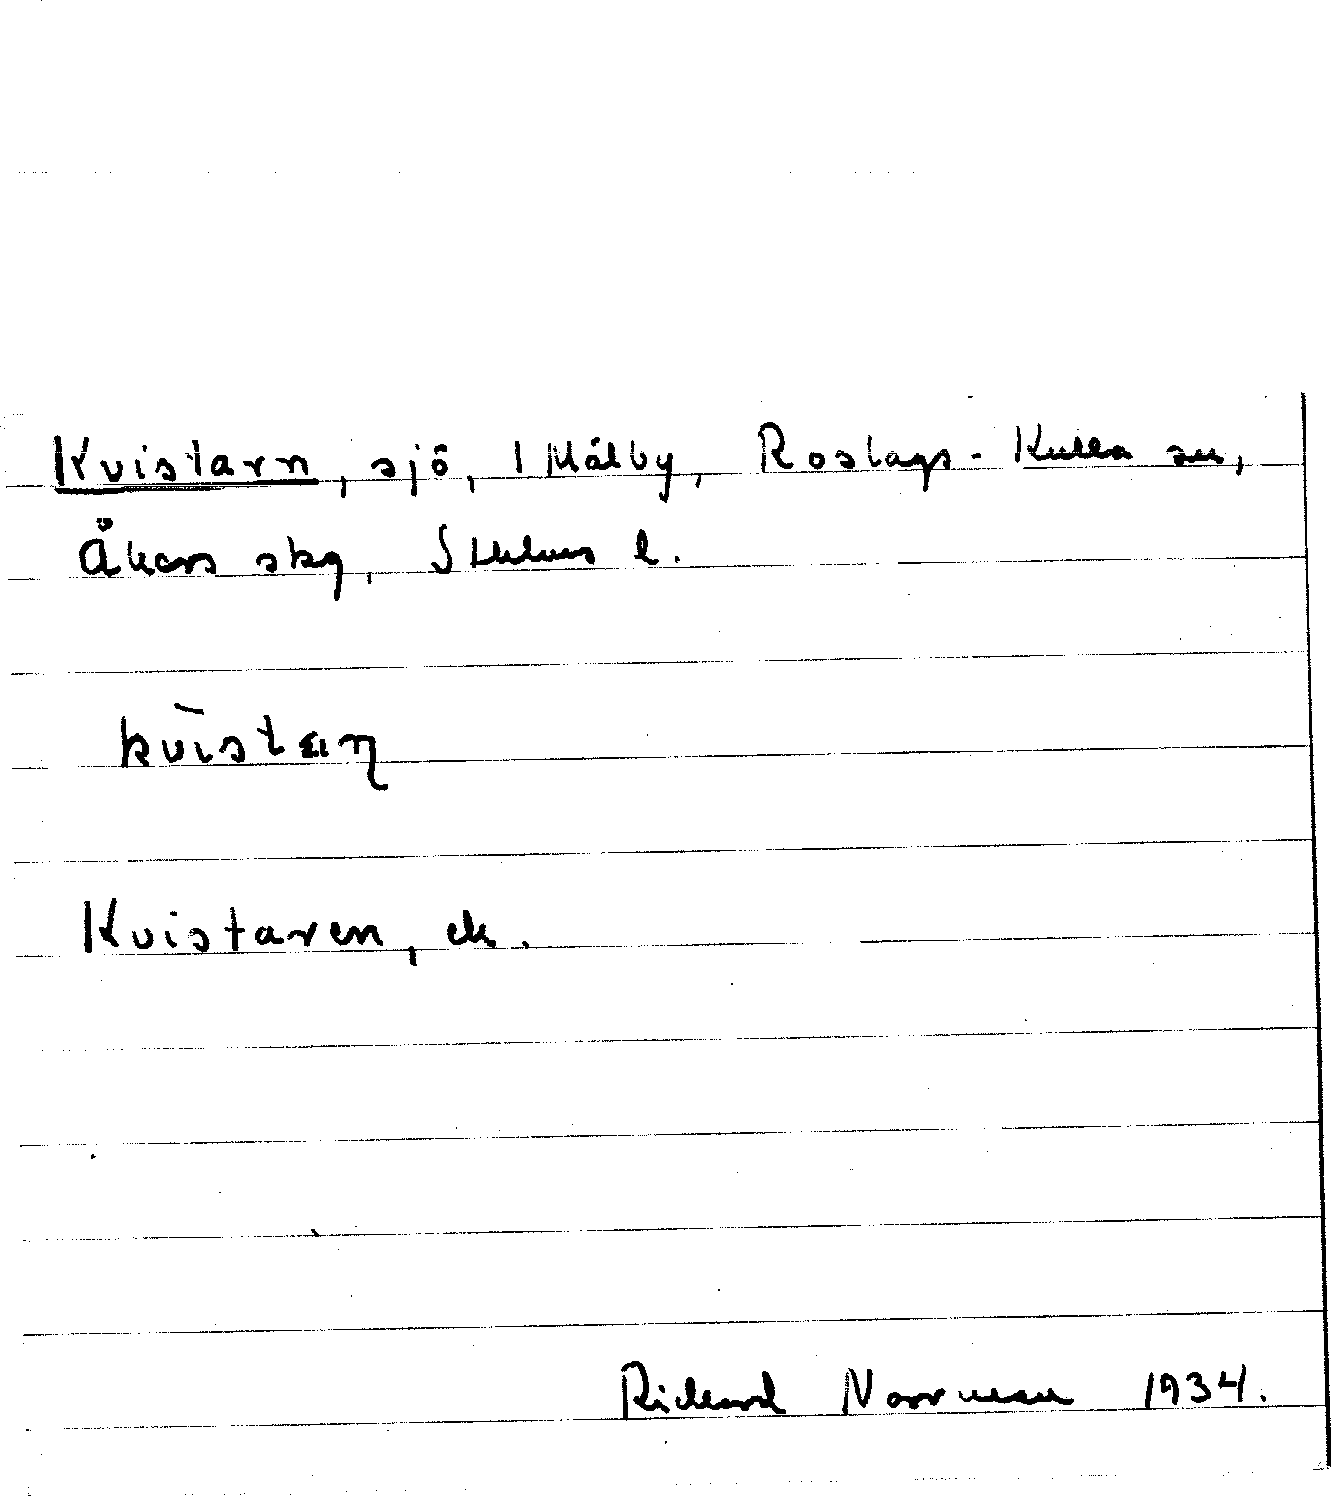 Kvistarn, sjö, 1 Målby, Roslags-Kulla sn,
Åkers skg, Sthlms l.
Kvistaren, ek.
Richard Norrman 1934.